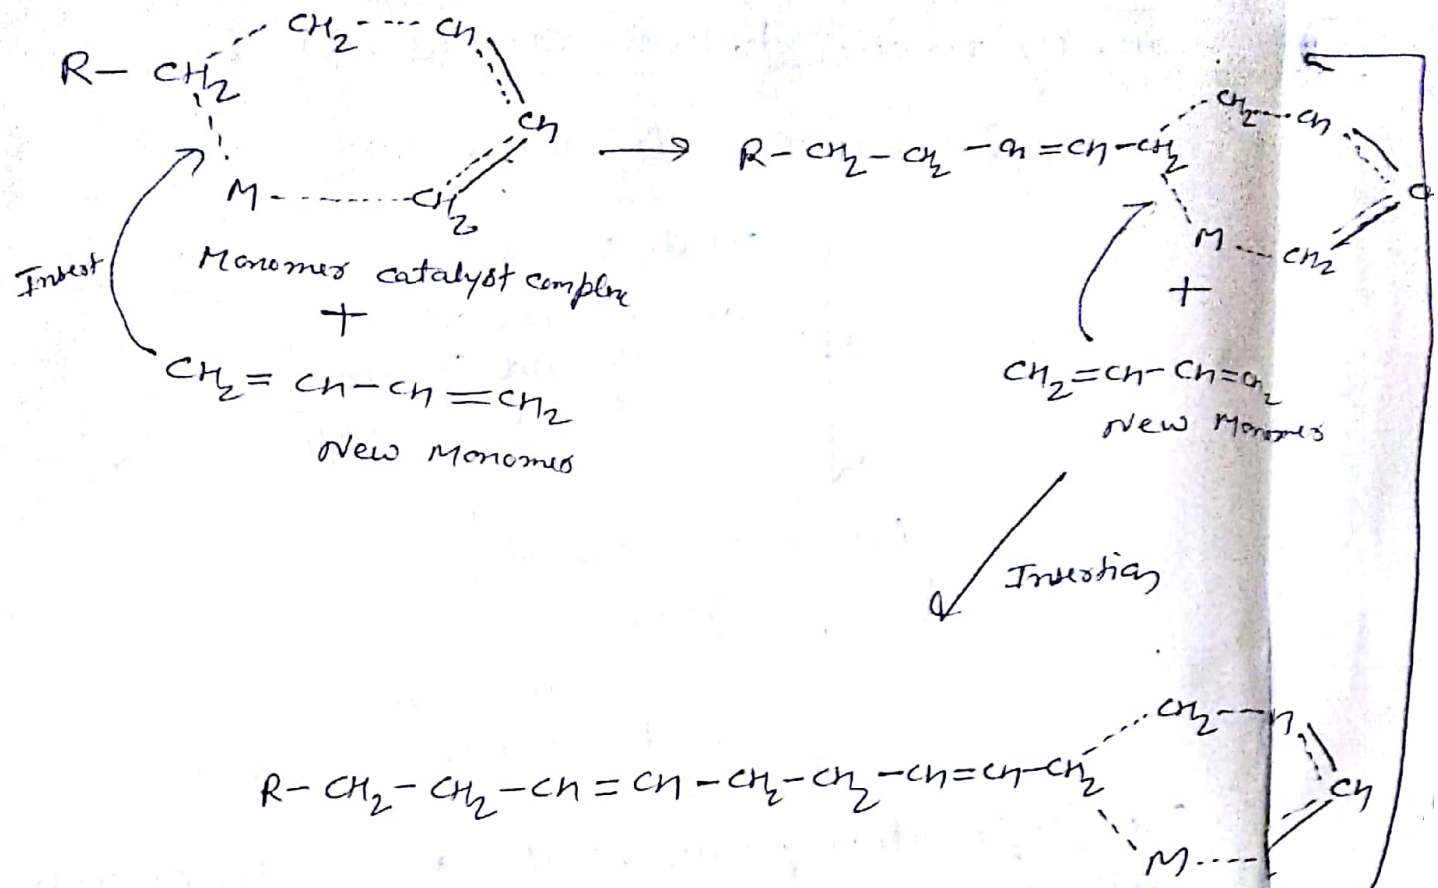 CH2 --- CH
R - CH2
CH
M ------- CH2
Insert
Monomer catalyst complex
+
CH2 = CH - CH = CH2
New Monomer
→ R - CH2 - CH2 - CH = CH - CH2
CH2 --- CH
C
M --- CH2
+
CH2 = CH - CH = CH2
New Monomer
Insertion
R - CH2 - CH2 - CH = CH - CH2 - CH2 - CH = CH - CH2
CH2 --- H
CH
M ----